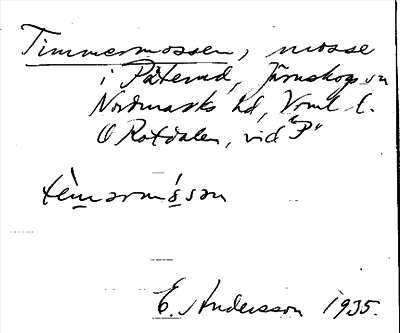 Timmermossen, mosse
i Påterud, Järnskogs sn
Nordmarks hd, Vrml l.
O Rotdalen, vid "P"
E. Andersson 1935.